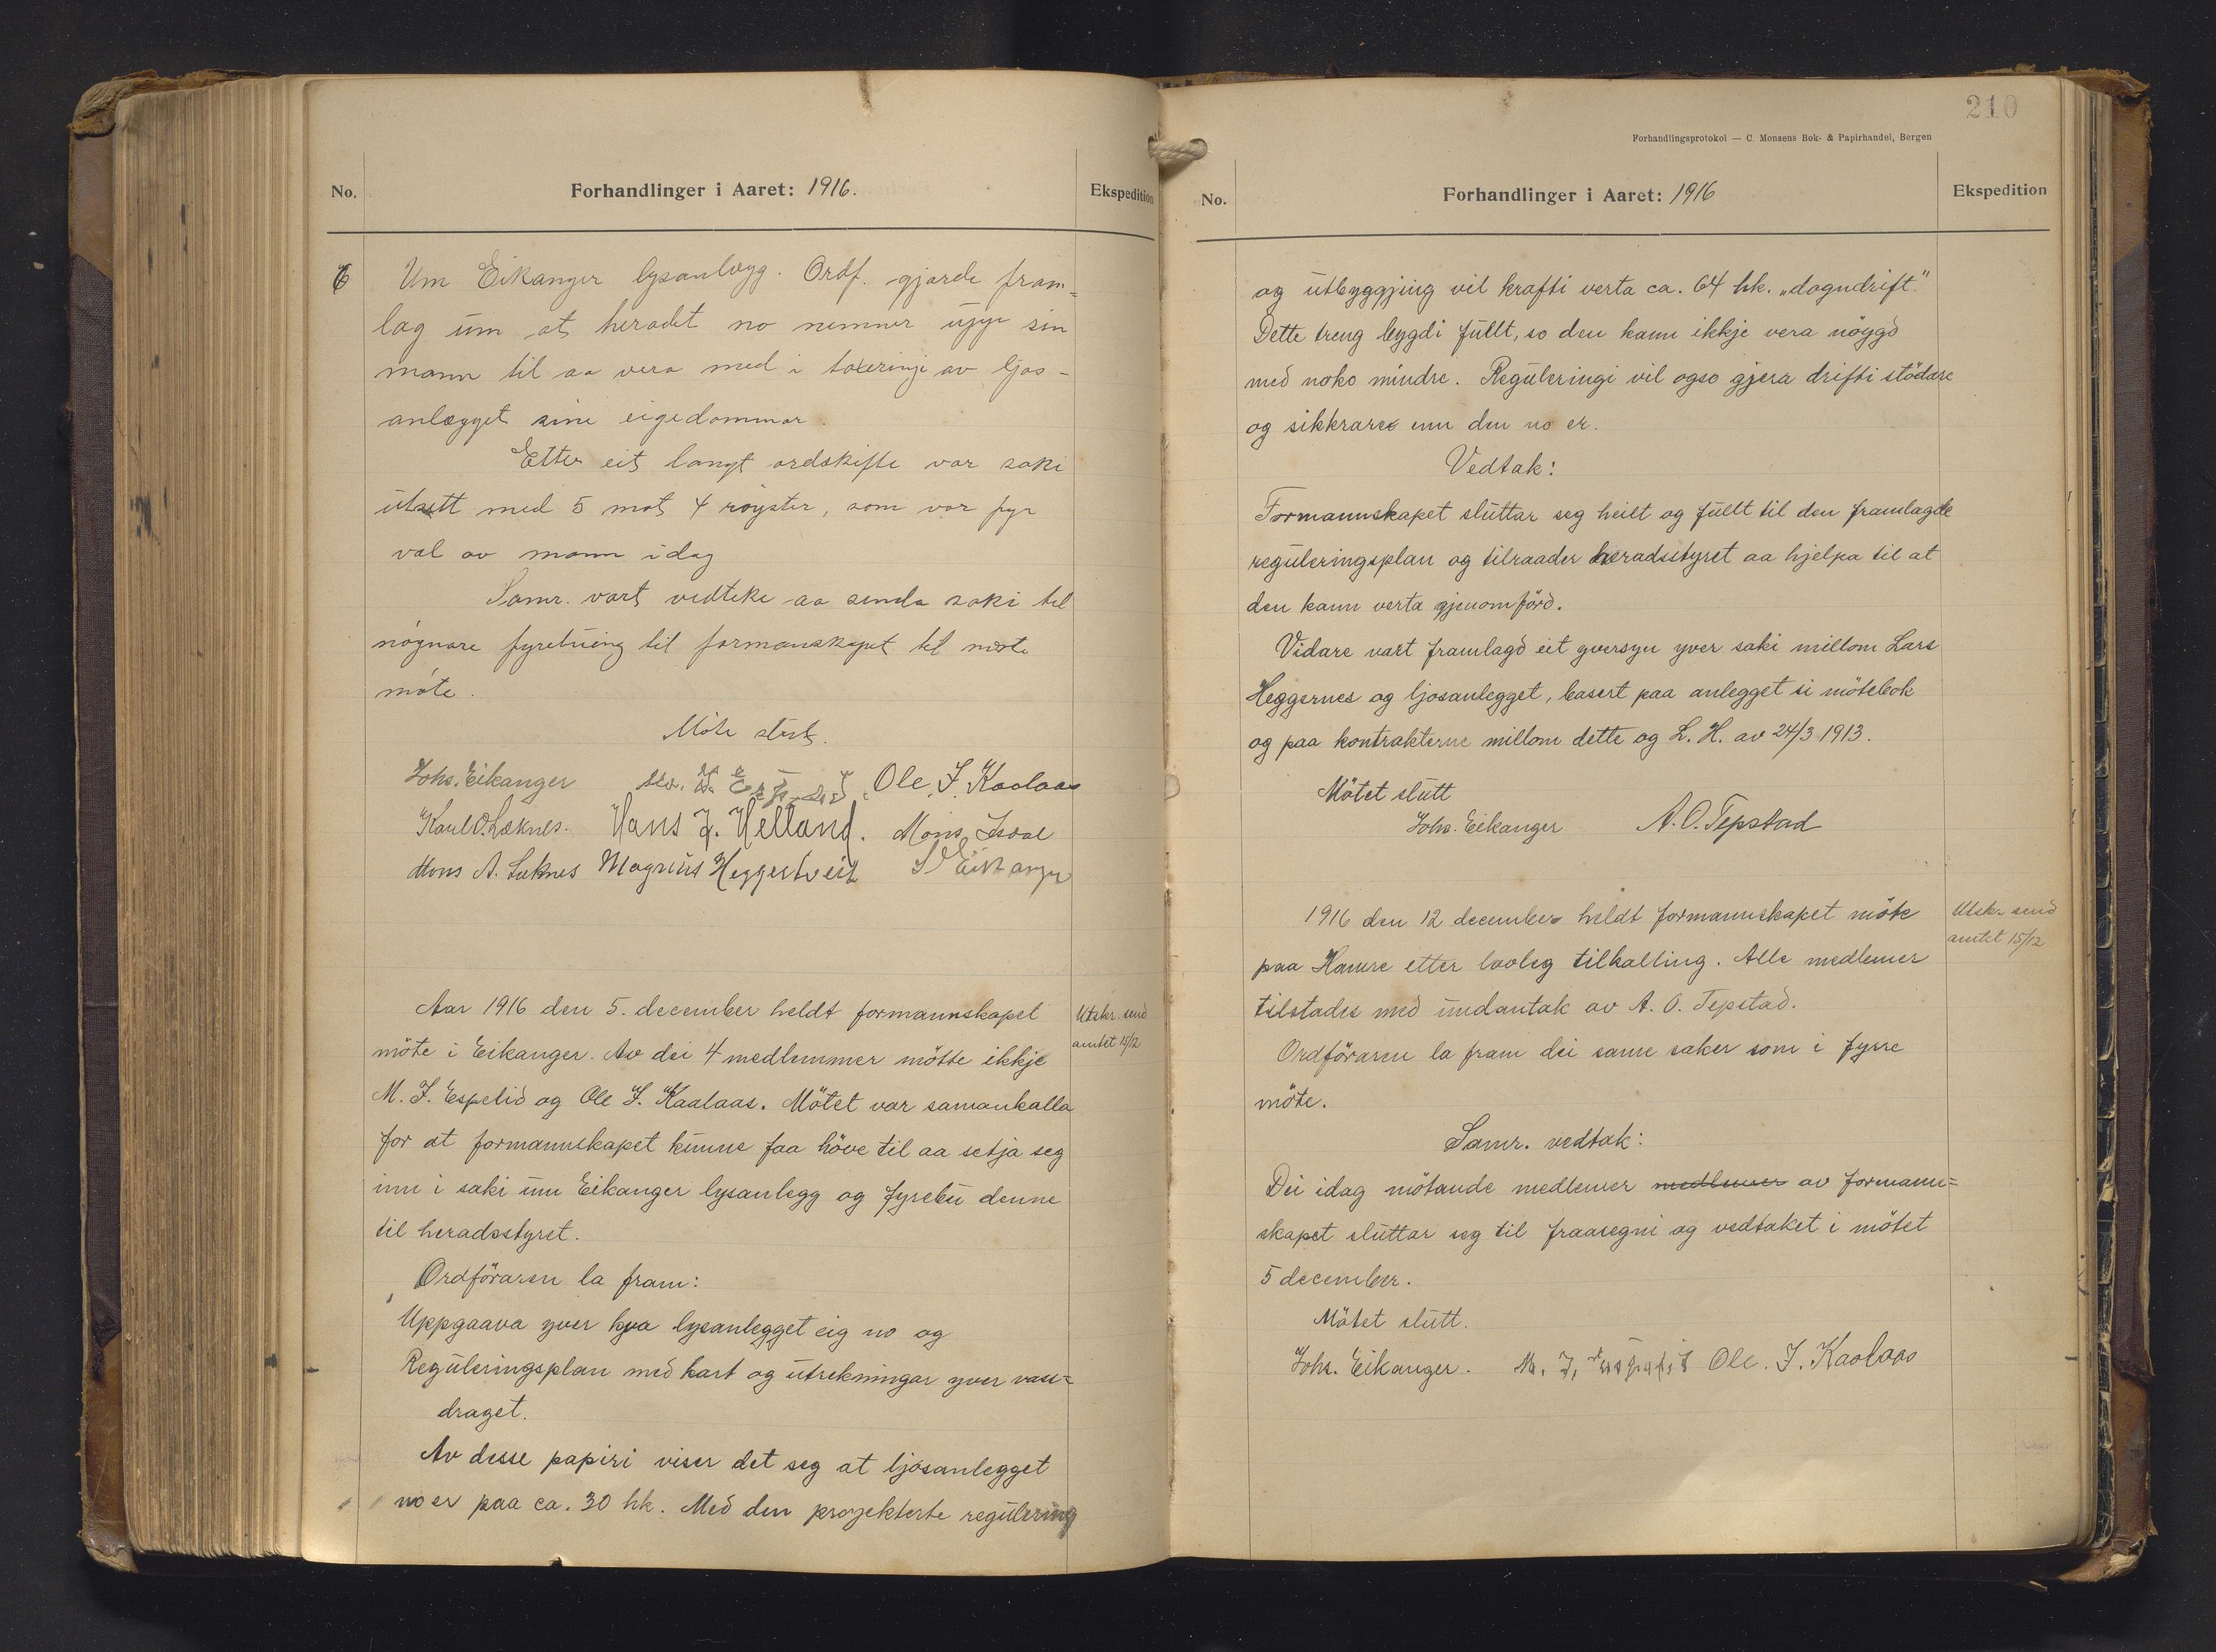 No.
Forhandlinger i Aaret: 1916.
Ekspedition
6
Um Eikanger lysanlegg. Ordf. gjorde fram=
lag um at heradet no nemner uppe sin
mann til aa vera med i taxeringi av ljos-
anlegget sine eigedommar.
Etter eit langt ordskifte var saki
utsett med 5 mot 4 røyster, som var fyr
val av mann idag
Samr. vart vedteke aa senda saki til
nögnare fyrebuing til formanskapet til næste
möte.
Möte slutt.
Johs. Eikanger Ole J. Kaalaas
Karl O. Læknes. Hans J. Helland. Mons Isdal
Mons A. Læknes Magnus Heggertveit Eikanger
Aar 1916 den 5. december heldt formannskapet
möte i Eikanger. Av dei 4 medlemmer mötte ikkje
M. J. Espelid og Ole J. Kaalaas. Mötet var samankalla
for at formannskapet kunne faa höve til aa setja seg
inn i saki um Eikanger lysanlegg og fyrebu denne
til heradsstyret.
Ordföraren la fram:
Uppgaava yver kva lysanlegget eig no og
Reguleringsplan med kart og utrekningar yver vass=
draget.
Av desse papiri viser det seg at ljosanlegget
no er paa ca. 30 hk. Med den projekterte regulering
Utskr. send
amtet 15/12
210
Forhandlingsprotokol — C. Monsens Bok- & Papirhandel, Bergen
No.
Forhandlinger i Aaret: 1916
Ekspedition
og utbyggjing vil krafti verta ca. 64 hk. „dogndrift."
Dette treng bygdi fullt, so den kann ikkje vera nöggd
med noko mindre. Reguleringi vil ogso gjera drifti stödare
og sikkrare enn den no er.
Vedtak:
Formannskapet sluttar seg heilt og fullt til den framlagde
reguleringsplan og tilraader heradsstyret aa hjelpa til at
den kann verta gjenomförd.
Vidare vart framlagd eit yversyn yver saki millom Lars
Heggernes og ljosanlegget, basert paa anlegget si mötebok
og paa kontrakterne millom dette og L. H. av 24/3 1913.
Mötet slutt
Johs. Eikanger A. O. Tepstad
1916 den 12 december heldt formannskapet möte
paa Hamre etter lovleg tilkalling. Alle medlemer
tilstades med undantak av A. O. Tepstad.
Ordföraren la fram dei same saker som i fyrre
möte.
Samr. vedtak:
Dei idag mötande medlemer medlemer av formann=
skapet sluttar seg til fraasegni og vedtaket i mötet
5 december.
Mötet slutt.
Johs. Eikanger. M. J. Espelid Ole. J. Kaalaas
Utskr. send
amtet 15/12